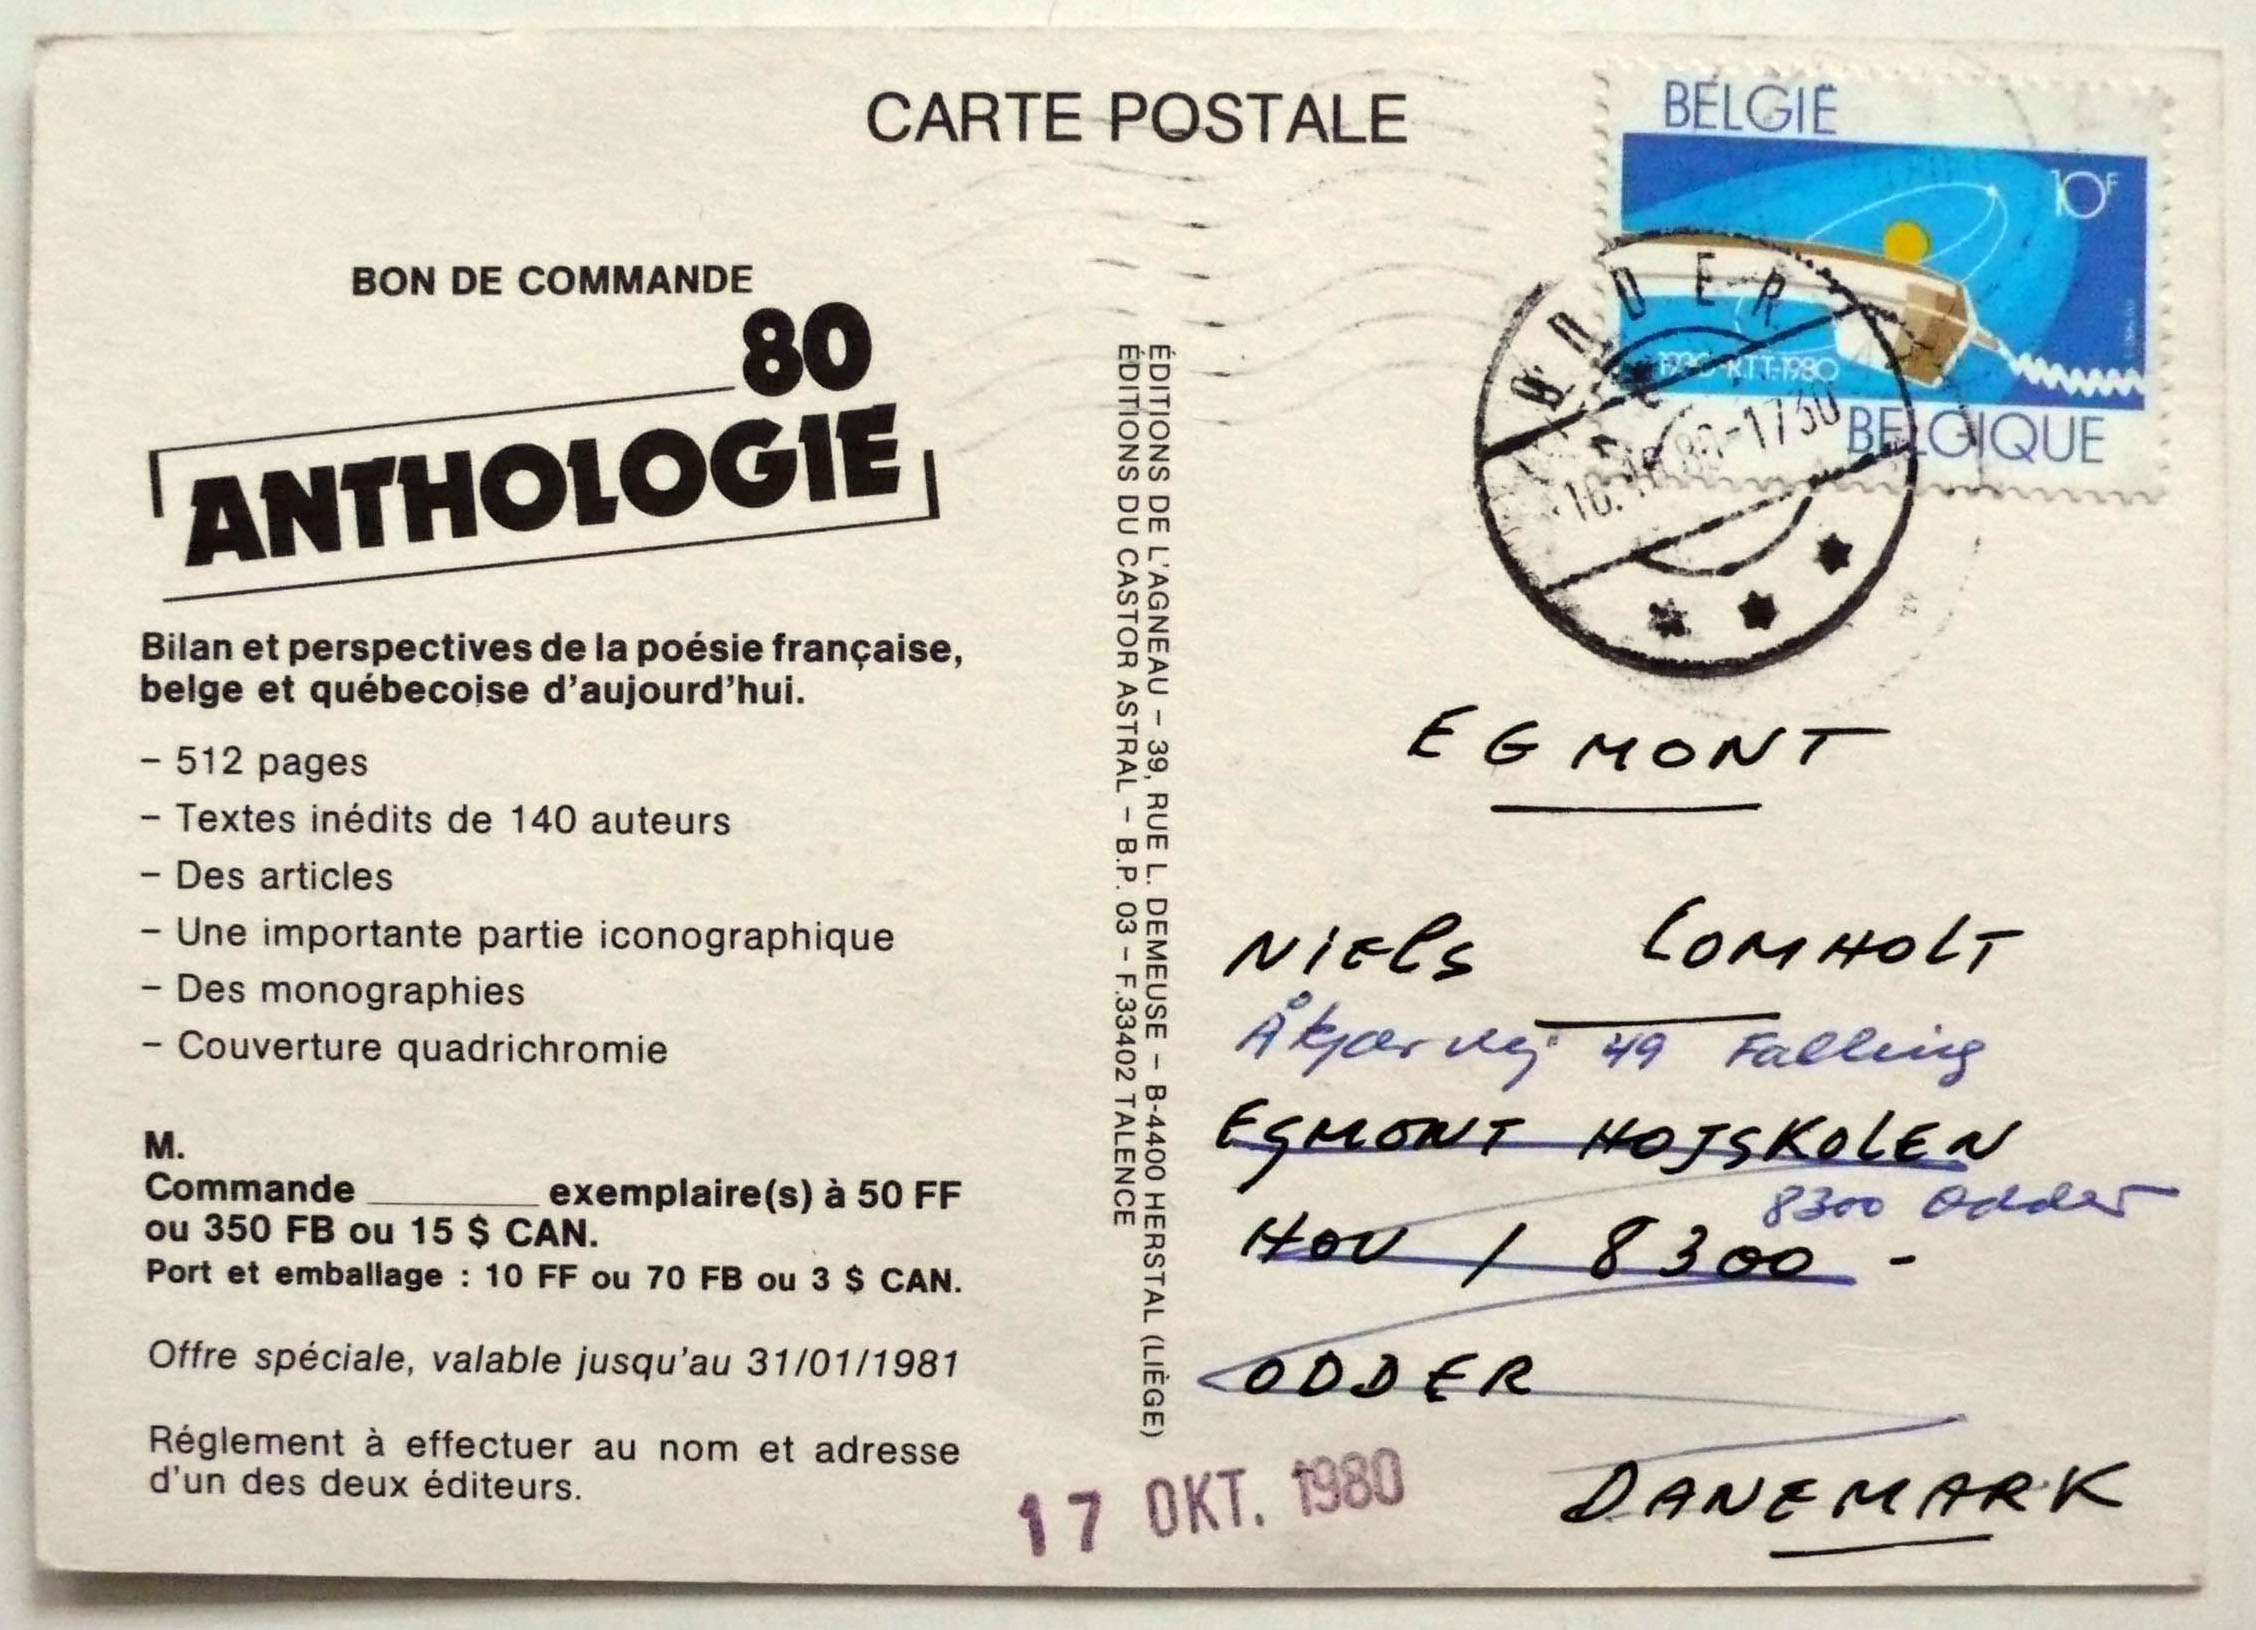 CARTE POSTALE
BELGIË
10F
1930-R.T.T.-1980
BELGIQUE
ODDER
BON DE COMMANDE
80
ANTHOLOGIE
Bilan et perspectives de la poésie française,
belge et québecoise d'aujourd'hui.
– 512 pages
– Textes inédits de 140 auteurs
– Des articles
– Une importante partie iconographique
– Des monographies
– Couverture quadrichromie
M.
Commande ________ exemplaire(s) à 50 FF
ou 350 FB ou 15 $ CAN.
Port et emballage : 10 FF ou 70 FB ou 3 $ CAN.
Offre spéciale, valable jusqu'au 31/01/1981
Réglement à effectuer au nom et adresse
d'un des deux éditeurs.
ÉDITIONS DE L'AGNEAU – 39, RUE L. DEMEUSE – B-4400 HERSTAL (LIÈGE)
ÉDITIONS DU CASTOR ASTRAL – B.P. 03 – F.33402 TALENCE
EGMONT
NIELS LOMHOLT
Åkjærvej 49 Falling
EGMONT HOJSKOLEN
8300 Odder
HOU / 8300 -
ODDER
DANEMARK
17 OKT. 1980